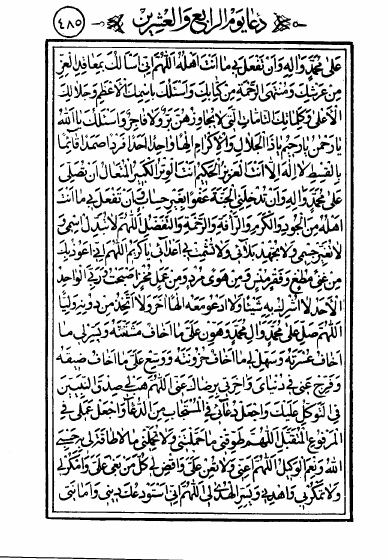 ٤٨٥
دعاء يوم الرابع والعشرين
على محمد واله وان تفعل بى ما انت اهله اللهم انى اسالك بمعاقد العز
من عرشك ومنتهى الرحمة من كتابك واسئلك باسمك الاعظم وجلالك
الاعلى وكلماتك التامات التى لا يجاوزهن بر ولا فاجر واسئلك يا الله
يا رحمن يا رحيم يا ذا الجلال والاكرام الها واحدا احدا فردا صمدا قائما
بالقسط لا اله الا انت العزيز الحكيم انت الوتر الكبير المتعال ان تصلى
على محمد واله وان تدخلنى الجنة عفوا بغير حساب وان تفعل بى ما انت
اهله من الجود والكرم والرافة والرحمة والتفضل اللهم لا تبدل اسمى و
لا تغير جسمى ولا تجهد بلائى ولا تشمت بى اعدائى يا كريم اللهم انى اعوذ بك
من غنى مطغ وفقر منس ومن هوى مرد ومن عمل مخز اصبحت وربى الواحد
الاحد لا اشرك به شيئا ولا ادعو معه الها اخر ولا اتخذ من دونه وليا
اللهم صل على محمد وال محمد وهون على ما اخاف مشقته ويسر لى ما
اخاف عسرته وسهل لى ما اخاف حزونته ووسع على ما اخاف ضيقه
وفرج عنى فى دنياى واخرتى برضاك عنى اللهم هب لى صدق اليقين
فى التوكل عليك واجعل دعائى فى المستجاب من الدعاء واجعل عملى فى
المرفوع المتقبل اللهم طوقنى ما حملتنى ولا تحملنى ما لا طاقة لى به حسبى
الله ونعم الوكيل اللهم اعنى ولا تعن على واقض لى على كل من بغى على وامكر لى
ولا تمكر بى واهدنى ويسر الهدى لى اللهم انى استودعك دينى وامانتى